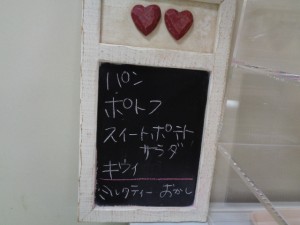 パン
ポトフ
スイートポテト
サラダ
キウイ
ミルクティー おかし